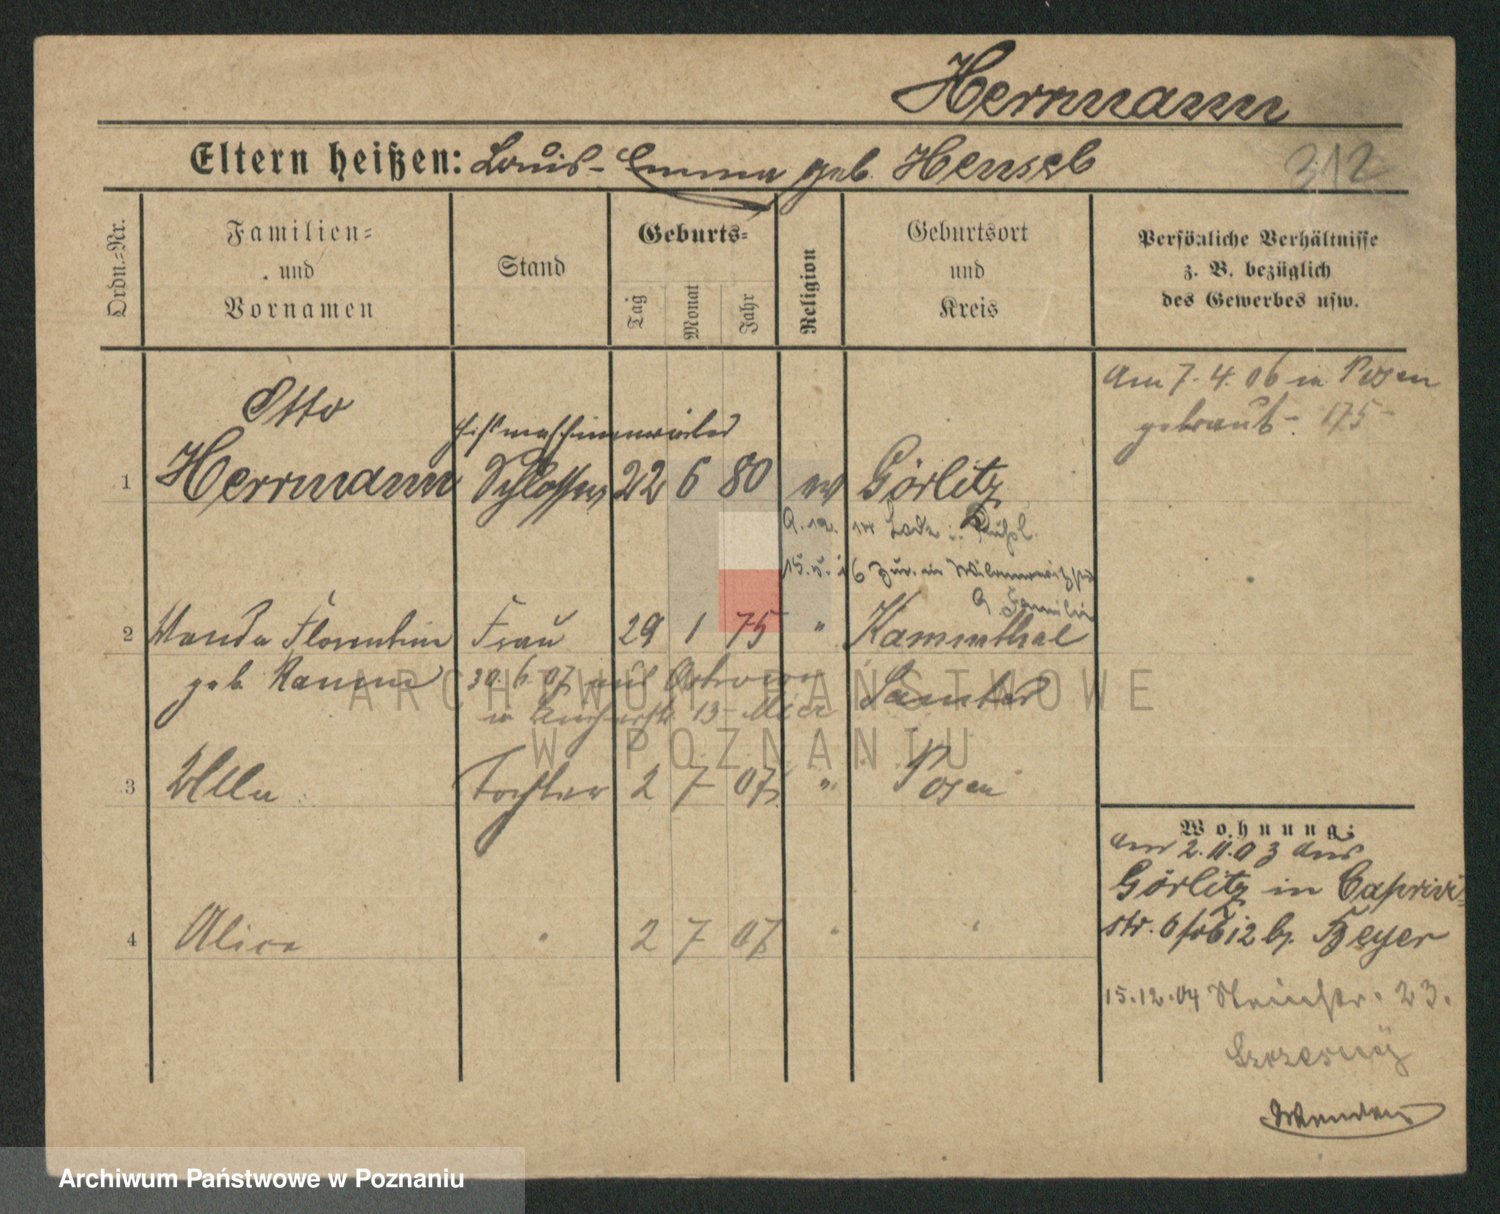 Herrmann
Eltern heißen: Louis - Emma geb. Hensel
312
Ordn.-Nr.
Familien-
und
Vornamen
Stand
Geburts-
Tag
Monat
Jahr
Religion
Geburtsort
und
Kreis
Persönliche Verhältnisse
z. B. bezüglich
des Gewerbes usw.
Am 7. 4. 06 in Posen
getraut - 175 -
Otto
1 Herrmann Schlosser 22 6 80 ev Görlitz
15. 5. 16 zur. in
Familie
2 Wanda Florentine Frau 29 1 75 " Kammthal
geb. 30. 6. 07 aus Ostrowo Samter
in 13
3 Ella Tochter 2 7 07 " Posen
4 Alice " 2 7 07 " "
Wohnung:
am 2. 11. 03 aus
Görlitz in Caprivi-
str. 6 12 b. Beyer
15. 12. 04 23.
ARCHIWUM PAŃSTWOWE
W POZNANIU
Archiwum Państwowe w Poznaniu